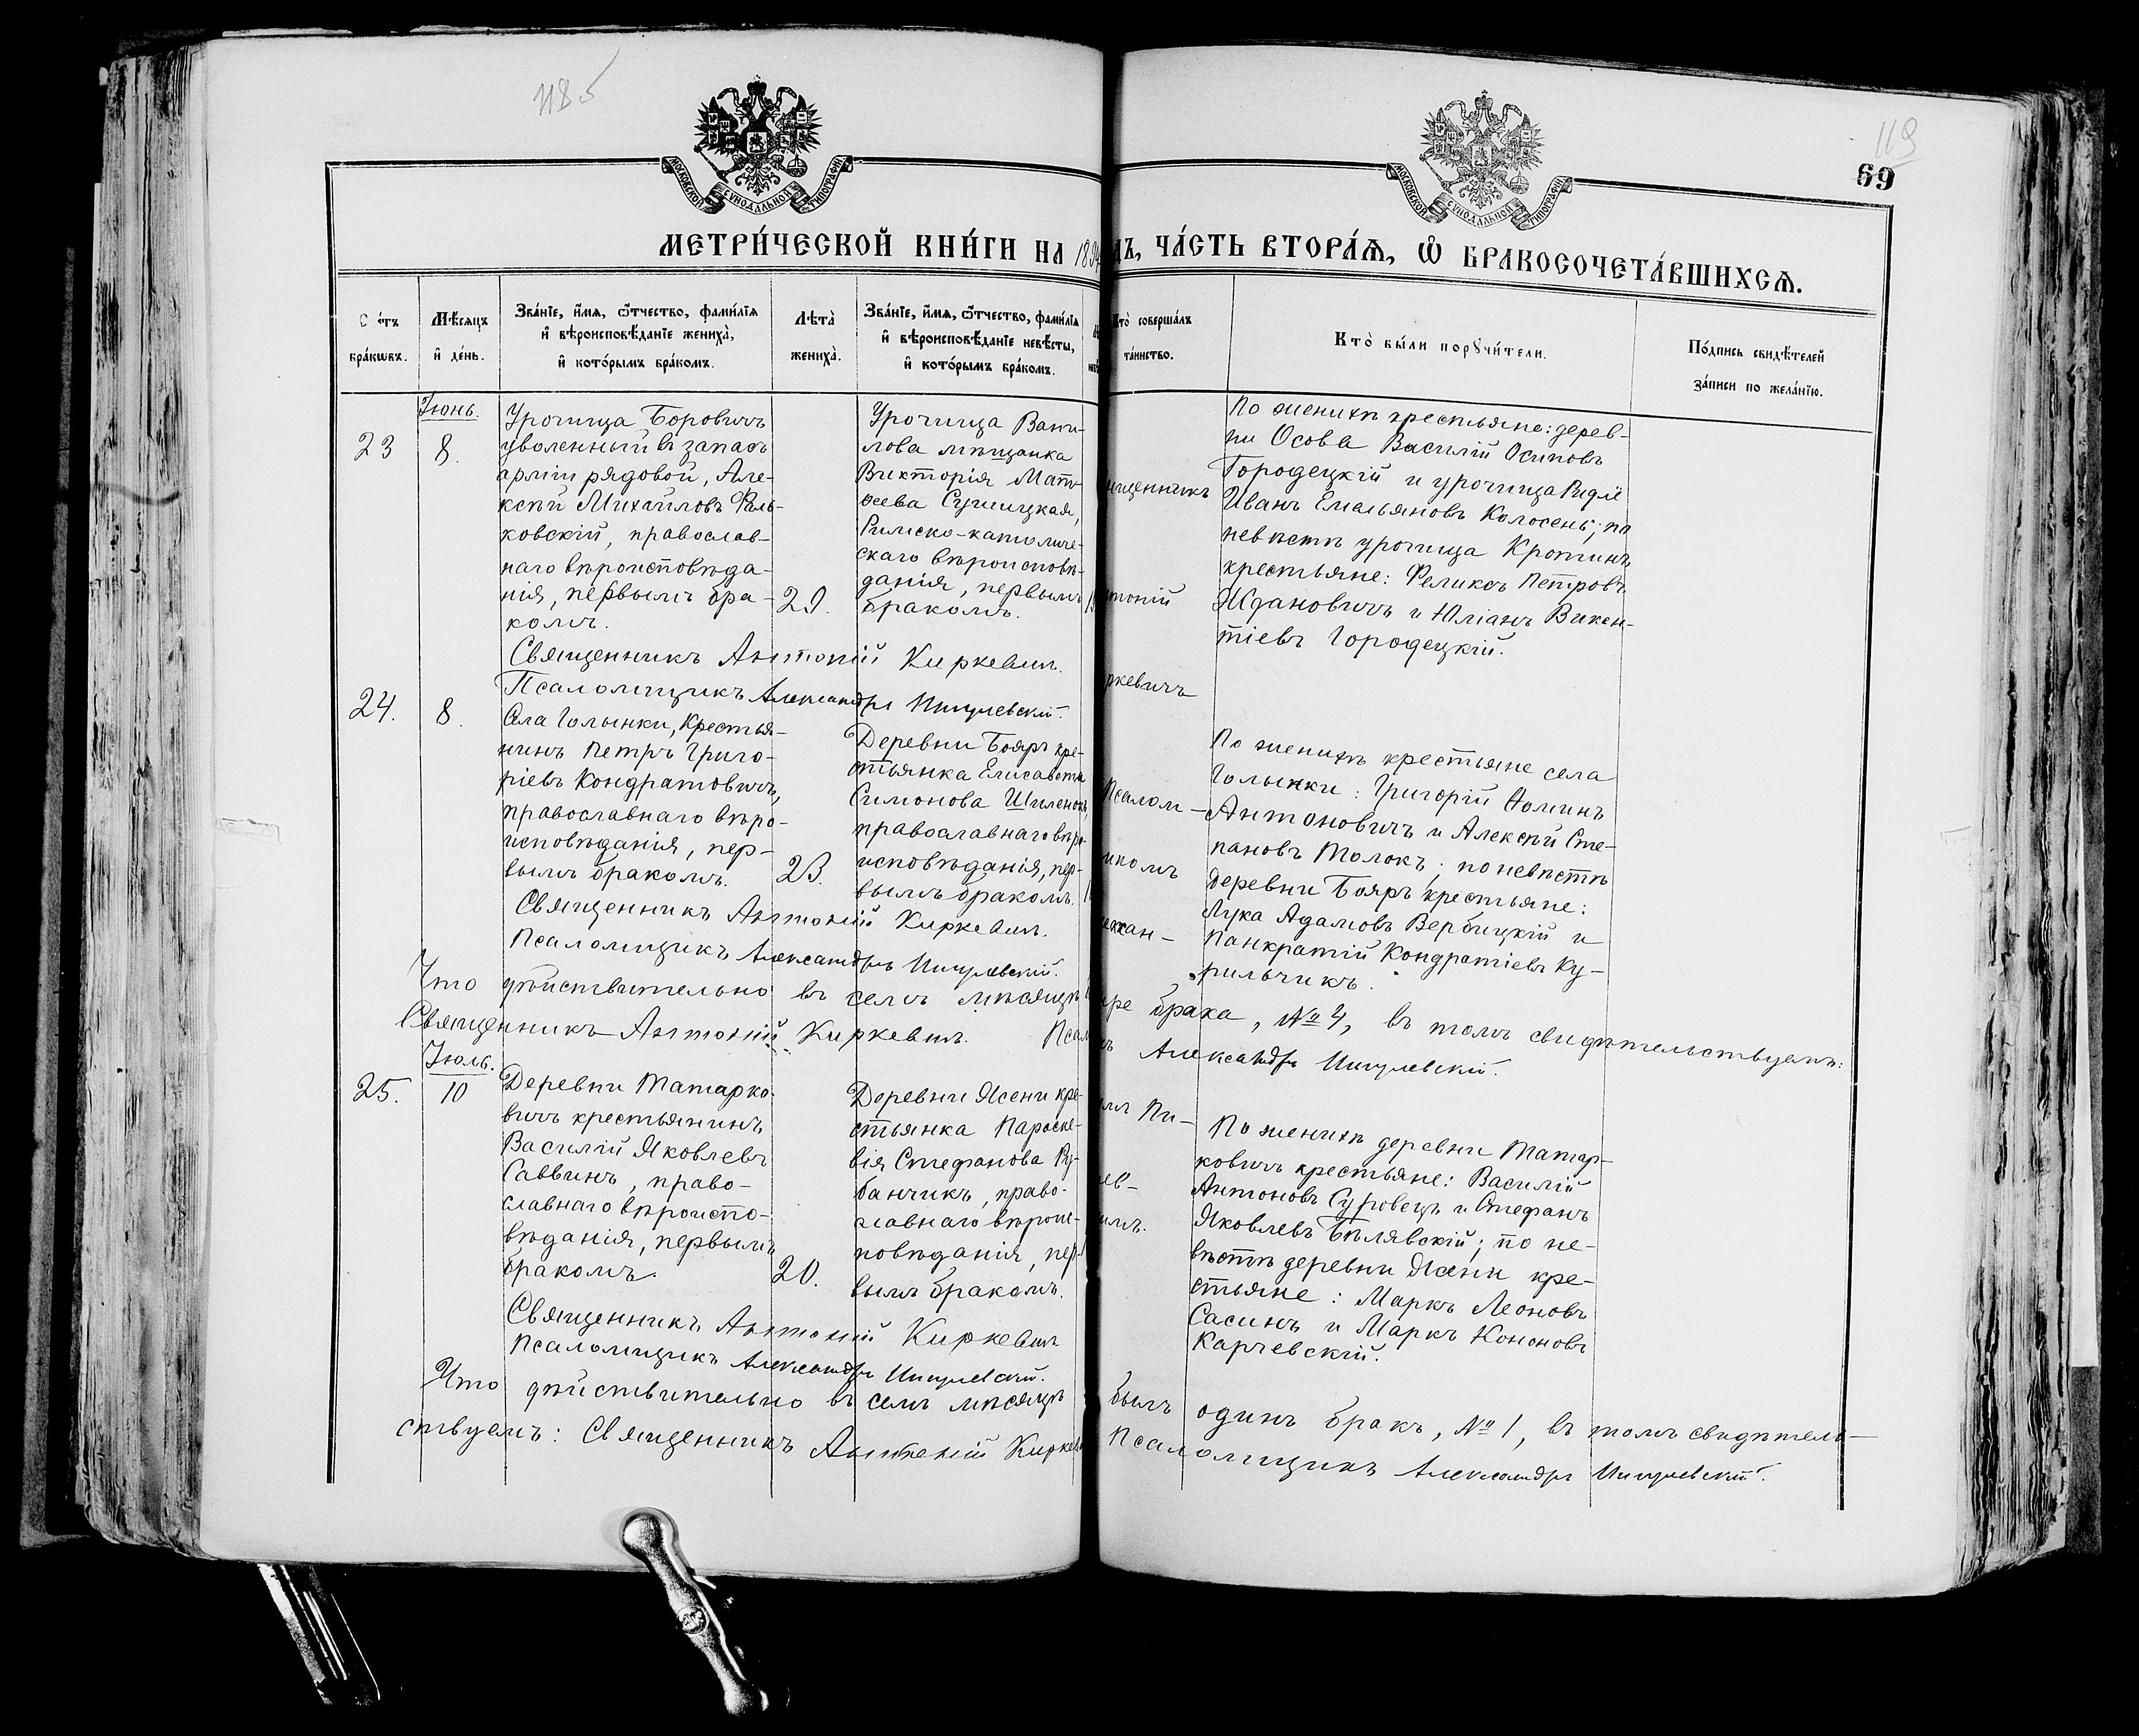 119
69
МОСКОВСКОЙ СѴНОДАЛЬНОЙ ТИПОГРАФІИ
МОСКОВСКОЙ СѴНОДАЛЬНОЙ ТИПОГРАФІИ
МЕТРИ́ЧЕСКОЙ КНИ́ГИ НА 189
ДЪ, ЧА́СТЬ ВТОРА́Ѧ, Ѽ БРАКОСОЧЕТА́ВШИХСѦ.
бра́кωвъ.
Мѣ́сяцъ
и҆ де́нь.
Зва́нїе, и҆́мѧ, ѻ҆́тчество, фами́лїѧ
и҆ вѣроисповѣ́данїе жениха̀,
и҆ кото́рымъ бра́комъ.
Лѣта̀
жениха̀.
Зва́нїе, и҆́мѧ, ѻ҆́тчество, фами́лїѧ
и҆ вѣроисповѣ́данїе невѣ́сты,
и҆ кото́рымъ бра́комъ.
Кто̀ соверша́лъ
та́инство.
Кто̀ бы́ли порꙋчи́тели.
По́дпись свидѣ́телей
за́писи по жела́нїю.
Іюнь.
23
8.
Урочища Боровичъ
уволенный въ запасъ
арміи рядовой, Але-
ксѣй Михайловъ Фаль-
ковскій, православ-
наго вѣроисповѣда-
нія, первымъ бра-
комъ.
29.
Урочища
лова мѣщанка
Викторія Матѳ-
ѳеева Сушицкая,
Римско-католиче-
скаго вѣроисповѣ-
данія, первымъ
бракомъ.
щенникъ
тоній
ркевичъ
По женихѣ крестьяне: дерев-
ни Осова Василій Осиповъ
Городецкій и урочища
Иванъ Емельяновъ Колосень; по
невѣстѣ урочища Кротинъ
крестьяне: Феликсъ Петровъ
Ждановичъ и Юліанъ Викен-
тіевъ Городецкій.
Священникъ Антоній Киркевичъ.
Псаломщикъ Александръ Пигулевскій.
24.
8.
Села Голынки, Крестья-
нинъ Петръ Григо-
ріевъ Кондратовичъ,
православнаго вѣро-
исповѣданія, пер-
вымъ бракомъ.
23.
Деревни Бояръ кре-
стьянка Елисавета
Симонова Шиленокъ,
православнаго вѣро-
исповѣданія, пер-
вымъ бракомъ.
Псалом-
икомъ
ексан-
По женихѣ крестьяне села
Голынки: Григорій Ѳоминъ
Антоновичъ и Алексѣй Сте-
пановъ Толокъ; по невѣстѣ
деревни Бояръ крестьяне:
Лука Адамовъ Вербицкій и
Панкратій Кондратіевъ Ку-
рильчикъ.
Священникъ Антоній Киркевичъ.
Псаломщикъ Александръ Пигулевскій.
Что дѣйствительно въ семъ мѣсяцѣ
ре брака, № 4, въ томъ свидѣтельствуемъ:
Священникъ Антоній Киркевичъ. Псал
ъ Александръ Пигулевскій.
Іюль.
25.
10
Деревни Татарко-
вичъ крестьянинъ
Василій Яковлевъ
Саввинъ, право-
славнаго вѣроиспо-
вѣданія, первымъ
бракомъ.
20.
Деревни Ясени кре-
стьянка Параске-
вія Стефанова Ру-
банчикъ, право-
славнаго вѣроис-
повѣданія, пер-
вымъ бракомъ.
мъ Пи-
лев-
имъ.
По женихѣ деревни Татар-
ковичъ крестьяне: Василій
Антоновъ Суровецъ и Стефанъ
Яковлевъ Бѣлявскій; по не-
вѣстѣ деревни Ясени кре-
стьяне: Маркъ Леоновъ
Сасинъ и Маркъ Кононовъ
Карчевскій.
Священникъ Антоній Киркевичъ
Псаломщикъ Александръ Пигулевскій.
Что дѣйствительно въ семъ мѣсяцѣ
былъ одинъ бракъ, № 1, въ томъ свидѣтель-
ствуемъ: Священникъ Антоній Киркев
Псаломщикъ Александръ Пигулевскій.